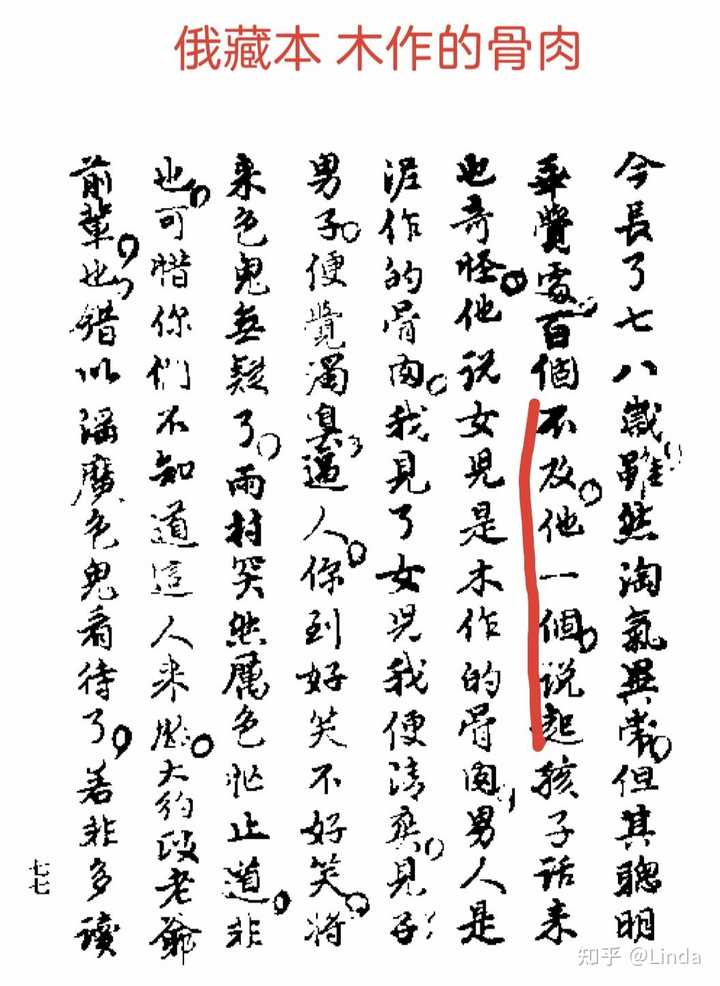 俄藏本 木作的骨肉
今長了七八歲雖然淘氣異常但其聰明
乖覺處百個不及他一個說起孩子話来
也奇怪他說女児是木作的骨肉男人是
泥作的骨肉我見了女児我便清爽見子
男子便覺濁臭逼人你到好笑不好笑将
来色鬼無疑了雨村突然厲色忙止道非
也可惜你們不知道這人来歷大約政老爺
前輩也錯以滛魔色鬼看待了若非多讀
七七
知乎 @Linda